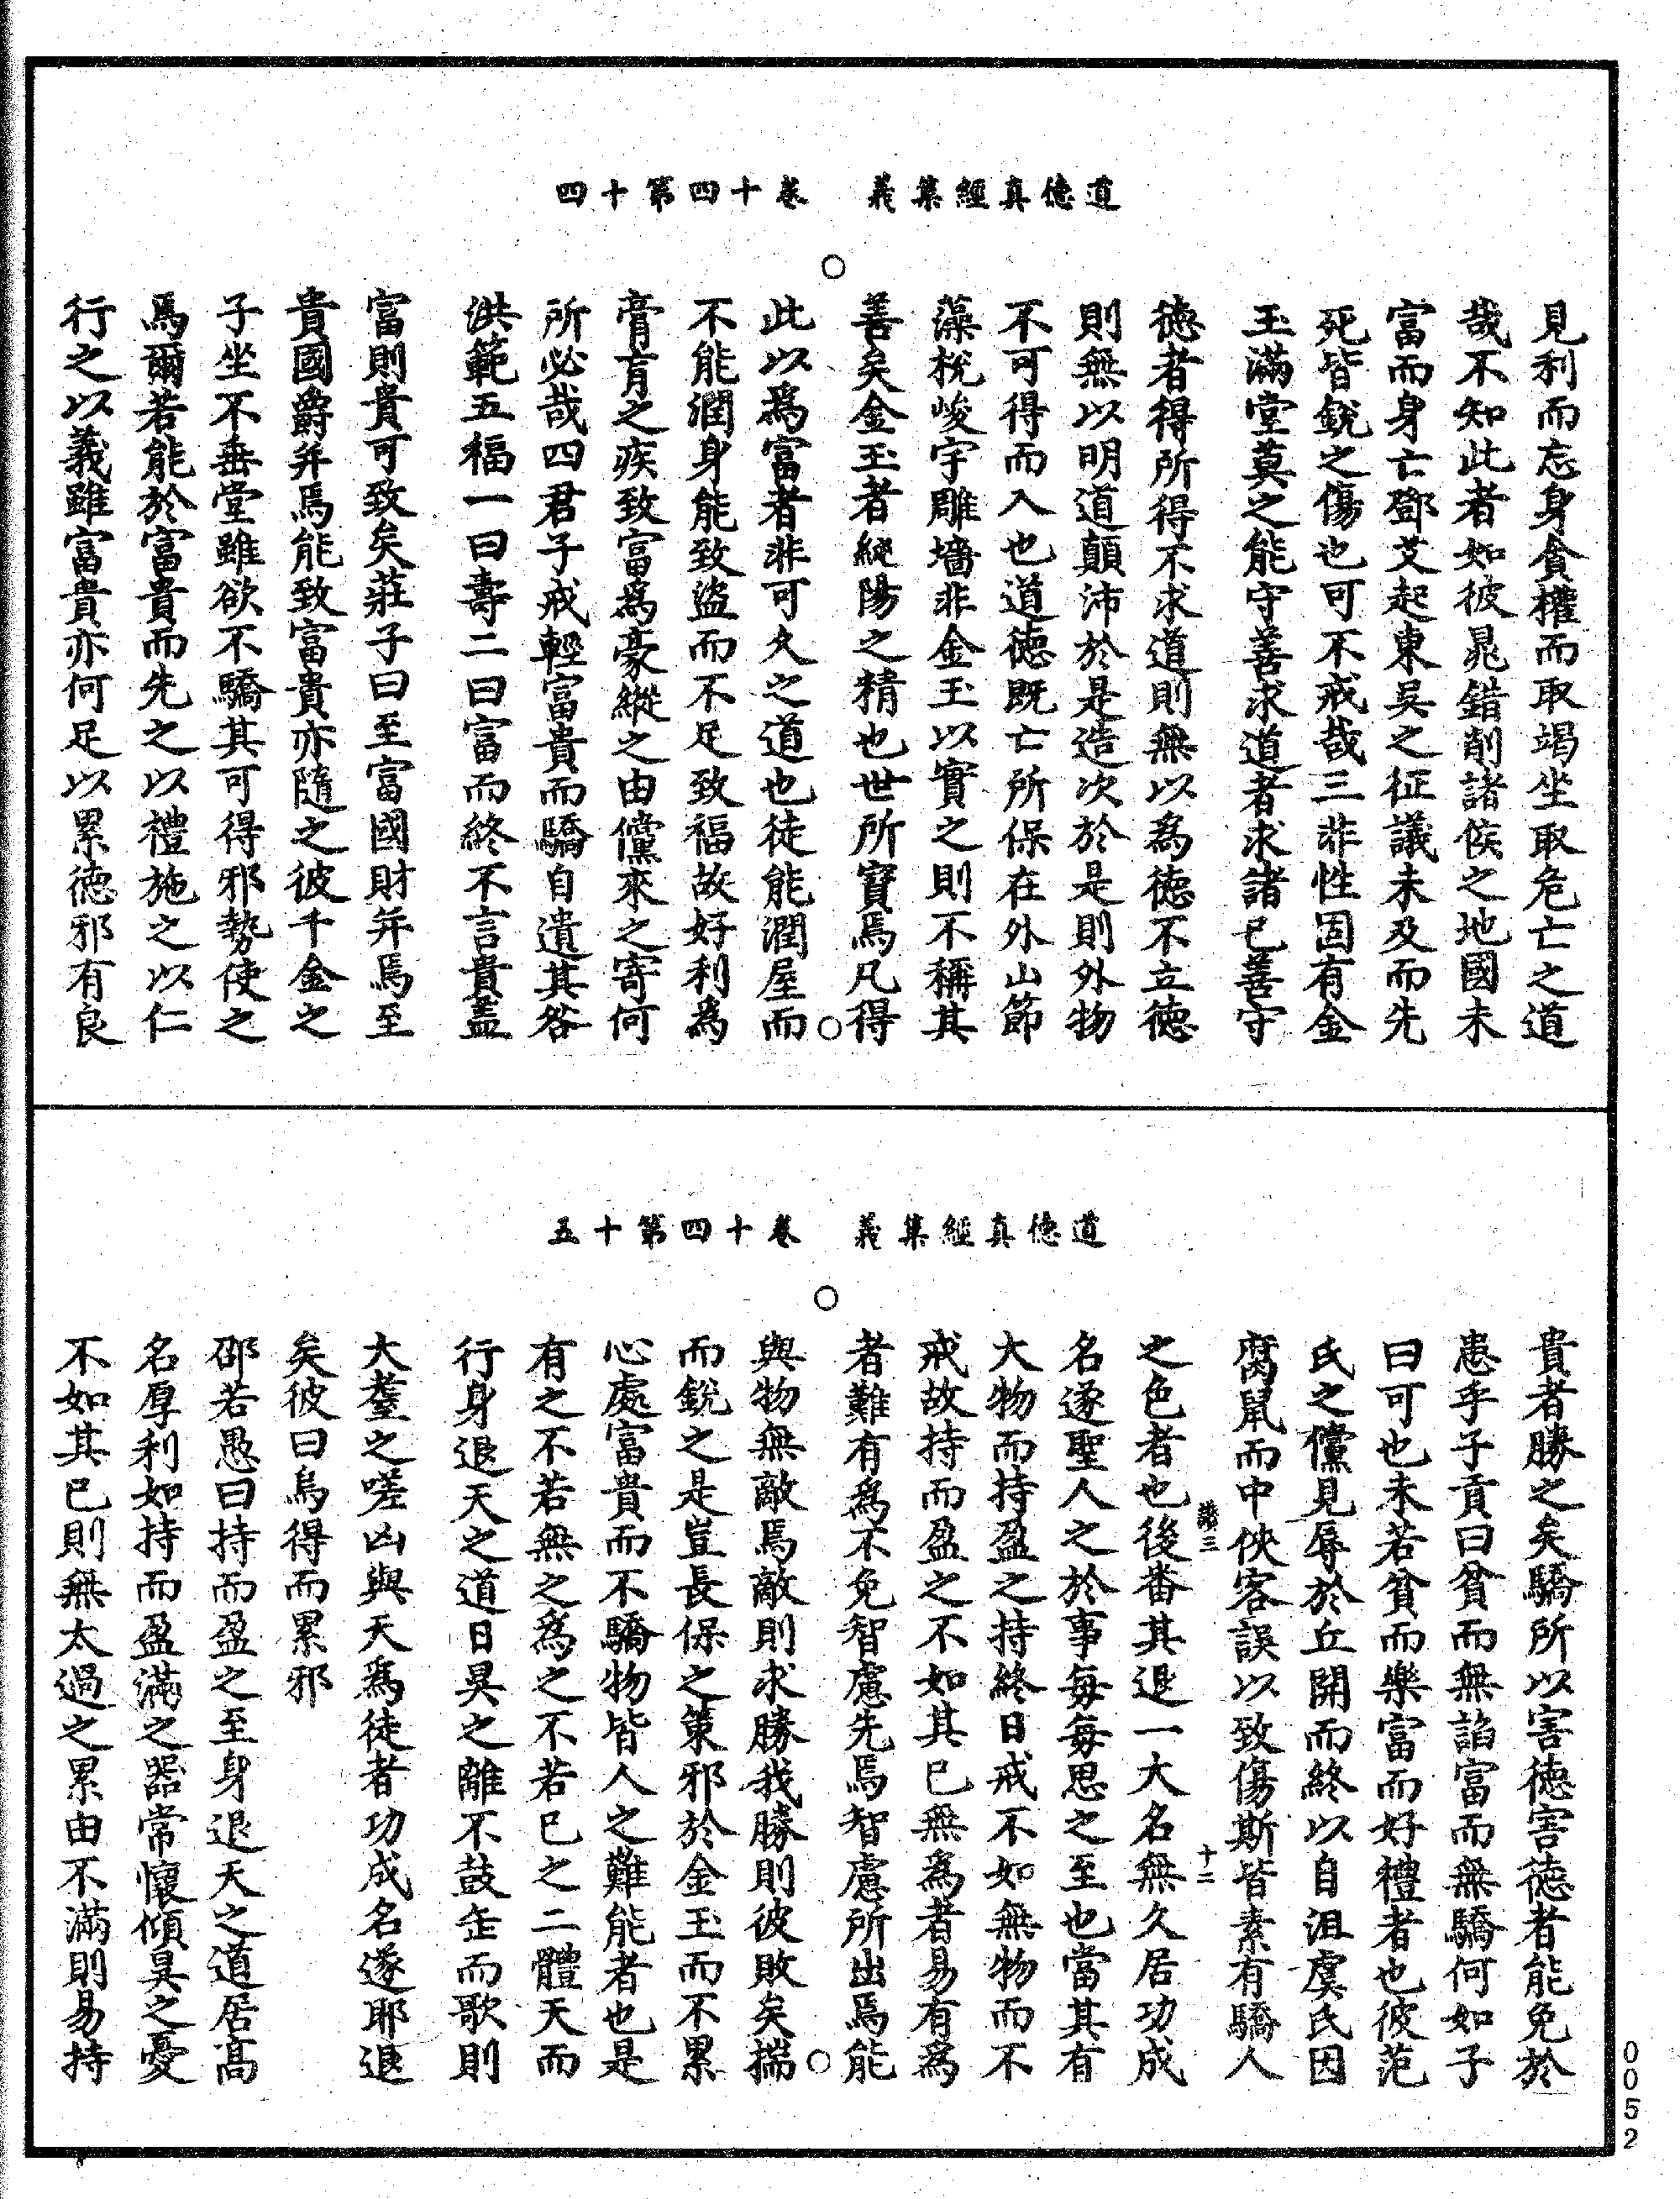 道德真經集義　卷十四第十四
見利而忘身貪權而取竭坐取危亡之道
哉不知此者如彼晁錯削諸侯之地國未
富而身亡鄧艾起東吳之征議未及而先
死皆銳之傷也可不戒哉三非性固有金
玉滿堂莫之能守善求道者求諸己善守
德者得所得不求道則無以為德不立德
則無以明道顛沛於是造次於是則外物
不可得而入也道德既亡所保在外山節
藻梲峻宇雕墻非金玉以實之則不稱其
善矣金玉者純陽之精也世所寶焉凡得
此以為富者非可久之道也徒能潤屋而
不能潤身能致盜而不足致福故好利為
膏肓之疾致富為豪縱之由儻來之寄何
所必哉四君子戒輕富貴而驕自遺其咎
洪範五福一曰壽二曰富而終不言貴蓋
富則貴可致矣莊子曰至富國財并焉至
貴國爵并焉能致富貴亦隨之彼千金之
子坐不垂堂雖欲不驕其可得邪勢使之
焉爾若能於富貴而先之以禮施之以仁
行之以義雖富貴亦何足以累德邪有良
道德真經集義　卷十四第十五
貴者勝之矣驕所以害德害德者能免於
患乎子貢曰貧而無諂富而無驕何如子
曰可也未若貧而樂富而好禮者也彼范
氏之儻見辱於丘開而終以自沮虞氏因
腐鼠而中俠客誤以致傷斯皆素有驕人
之色者也後番其退一大名無久居功成
名遂聖人之於事每每思之至也當其有
大物而持盈之持終日戒不如無物而不
戒故持而盈之不如其已無為者易有為
者難有為不免智慮先焉智慮所出焉能
與物無敵焉敵則求勝我勝則彼敗矣揣
而銳之是豈長保之策邪於金玉而不累
心處富貴而不驕物皆人之難能者也是
有之不若無之為之不若已之二體天而
行身退天之道日昃之離不鼓缶而歌則
大耋之嗟凶與天為徒者功成名遂耶退
矣彼曰烏得而累邪
邵若愚曰持而盈之至身退天之道居高
名厚利如持而盈滿之器常懷傾昃之憂
不如其已則無太過之累由不滿則易持
十二
0052